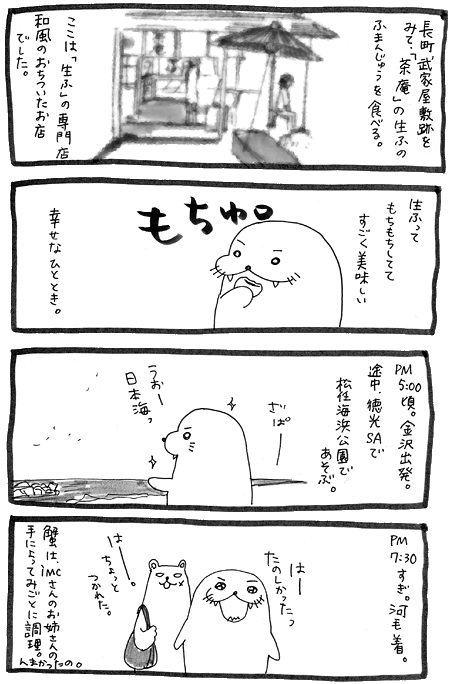 長町武家屋敷跡を
みて、「茶庵」の生ふの
ふまんじゅうを食べる。
ここは「生ふ」の専門店
和風のおちついたお店
でした。
生ふって
もちもちしてて
すごく美味しい
もちゅ。
幸せなひととき。
PM
5:00
頃。金沢出発。
途中、徳光SAで
松任海浜公園で
あそぶ。
ざぱー
うおー
日本海っ
PM
7:30
すぎ。河毛着。
はー
たのしかったっ
はー。
ちょっと
つかれた。
蟹は、imcさんのお姉さんの
手によってみごとに調理。
んまかったの。